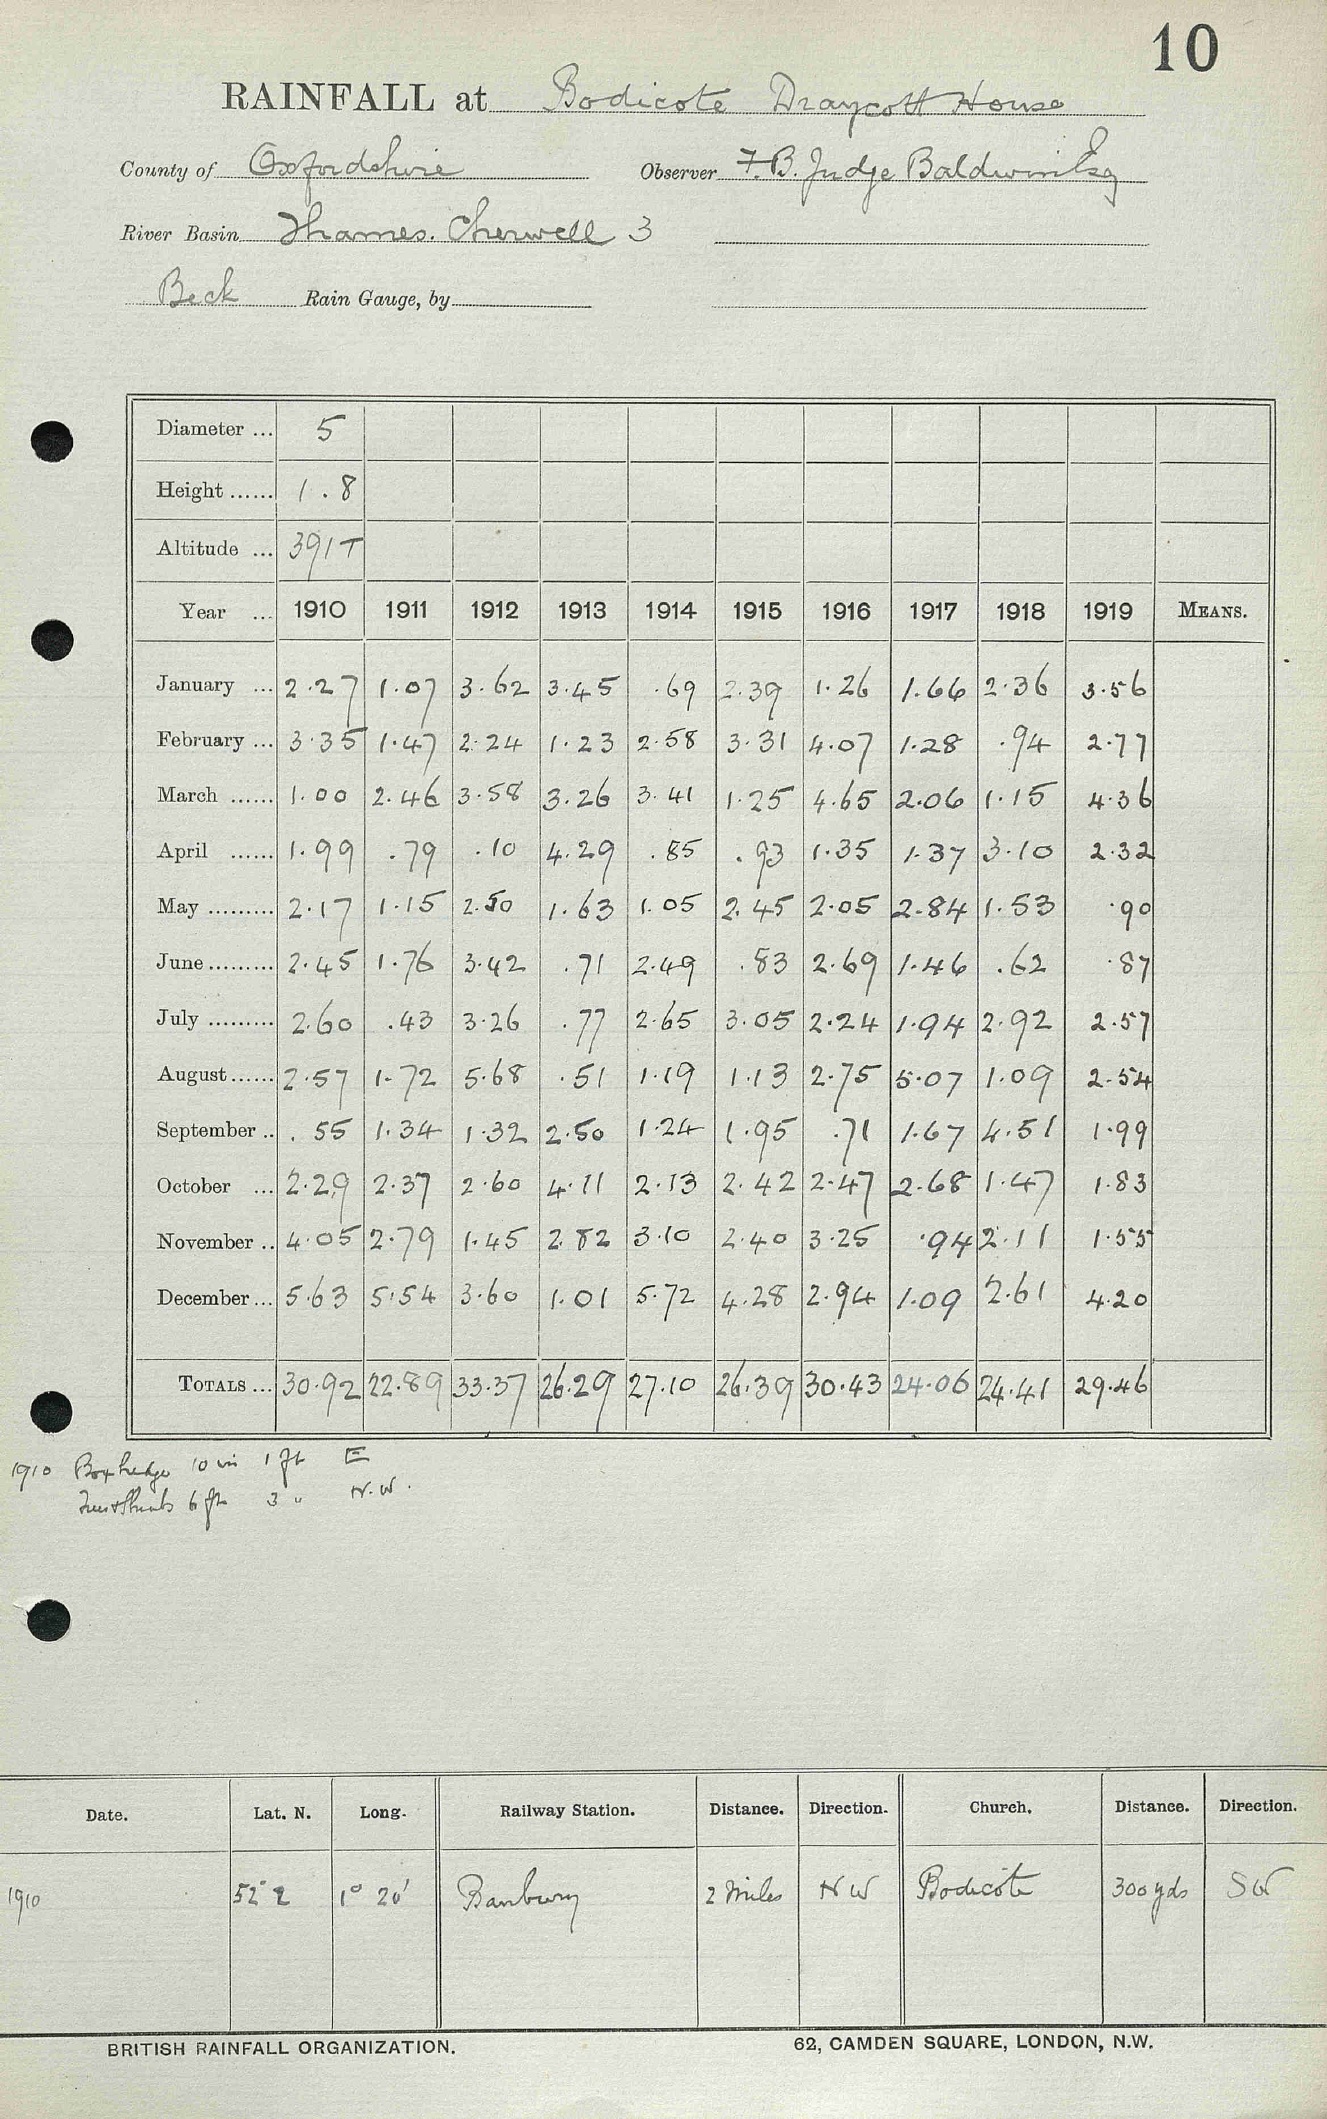 10
RAINFALL at Bodicote Draycott House
County of Oxfordshire Observer F.B. Judge Baldwin Esq
River Basin Thames. Cherwell 3
Beck Rain Gauge, by
Diameter ... 5
Height ...... 1.8
Altitude ... 391T
Year ... 1910 1911 1912 1913 1914 1915 1916 1917 1918 1919 MEANS.
January ... 2.27 1.07 3.62 3.45 .69 2.39 1.26 1.66 2.36 3.56
February ... 3.35 1.47 2.24 1.23 2.58 3.31 4.07 1.28 .94 2.77
March ...... 1.00 2.46 3.58 3.26 3.41 1.25 4.65 2.06 1.15 4.36
April ...... 1.99 .79 .10 4.29 .85 .93 1.35 1.37 3.10 2.32
May ......... 2.17 1.15 2.50 1.63 1.05 2.45 2.05 2.84 1.53 .90
June ......... 2.45 1.76 3.42 .71 2.49 .83 2.69 1.46 .62 .87
July ......... 2.60 .43 3.26 .77 2.65 3.05 2.24 1.94 2.92 2.57
August ...... 2.57 1.72 5.68 .51 1.19 1.13 2.75 5.07 1.09 2.54
September .. .55 1.34 1.32 2.50 1.24 1.95 .71 1.67 4.51 1.99
October ... 2.29 2.37 2.60 4.11 2.13 2.42 2.47 2.68 1.47 1.83
November .. 4.05 2.79 1.45 2.82 3.10 2.40 3.25 .94 2.11 1.55
December ... 5.63 5.54 3.60 1.01 5.72 4.28 2.94 1.09 2.61 4.20
TOTALS ... 30.92 22.89 33.37 26.29 27.10 26.39 30.43 24.06 24.41 29.46
1910 Box hedge 10 in 1 ft E
Trees + Shrubs 6 ft 3 " N.W.
Date. Lat. N. Long. Railway Station. Distance. Direction. Church. Distance. Direction.
1910 52° 2 1° 20' Banbury 2 Miles NW Bodicote 300 yds SW
BRITISH RAINFALL ORGANIZATION. 62, CAMDEN SQUARE, LONDON, N.W.